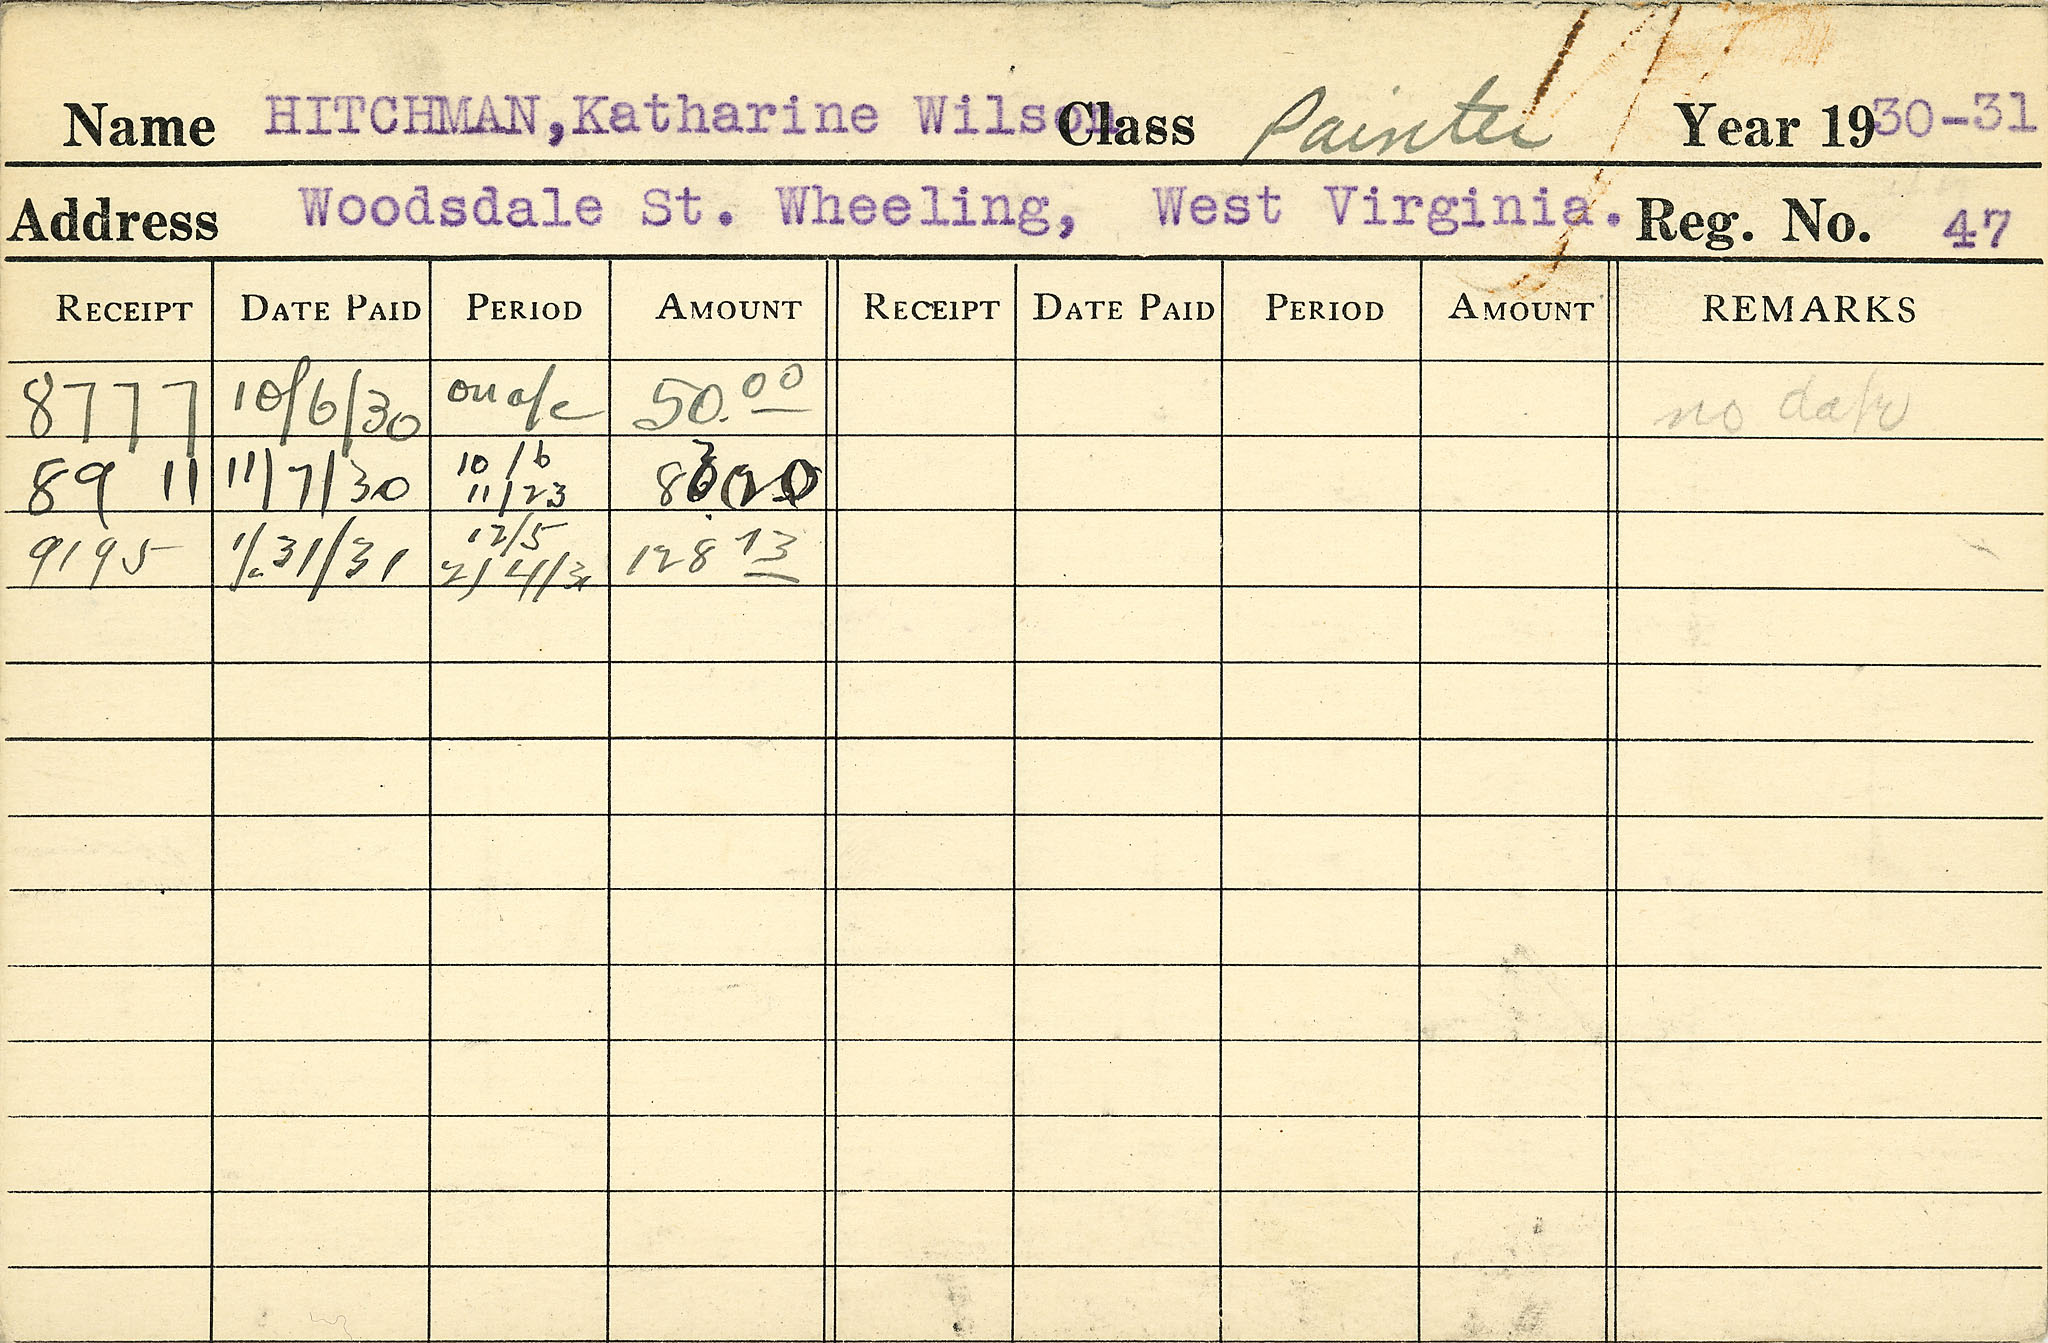 Name HITCHMAN, Katharine Wilson Class Painter Year 1930-31
Address Woodsdale St. Wheeling, West Virginia. Reg. No. 47
RECEIPT DATE PAID PERIOD AMOUNT RECEIPT DATE PAID PERIOD AMOUNT REMARKS
8777 10/6/30 on a/c 50.00 no date
8911 11/7/30 10/6 11/23
9195 1/31/31 12/5 2/4/31 128 73